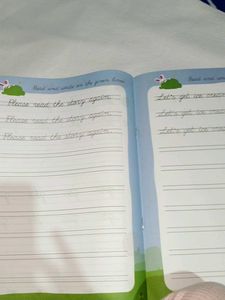 Read and write on the given lines.
Please read the story again.
Please read the story again.
Please read the story again.
Read and wri
Let's get ice cream
Let's get ice crea
Let's get ice crea